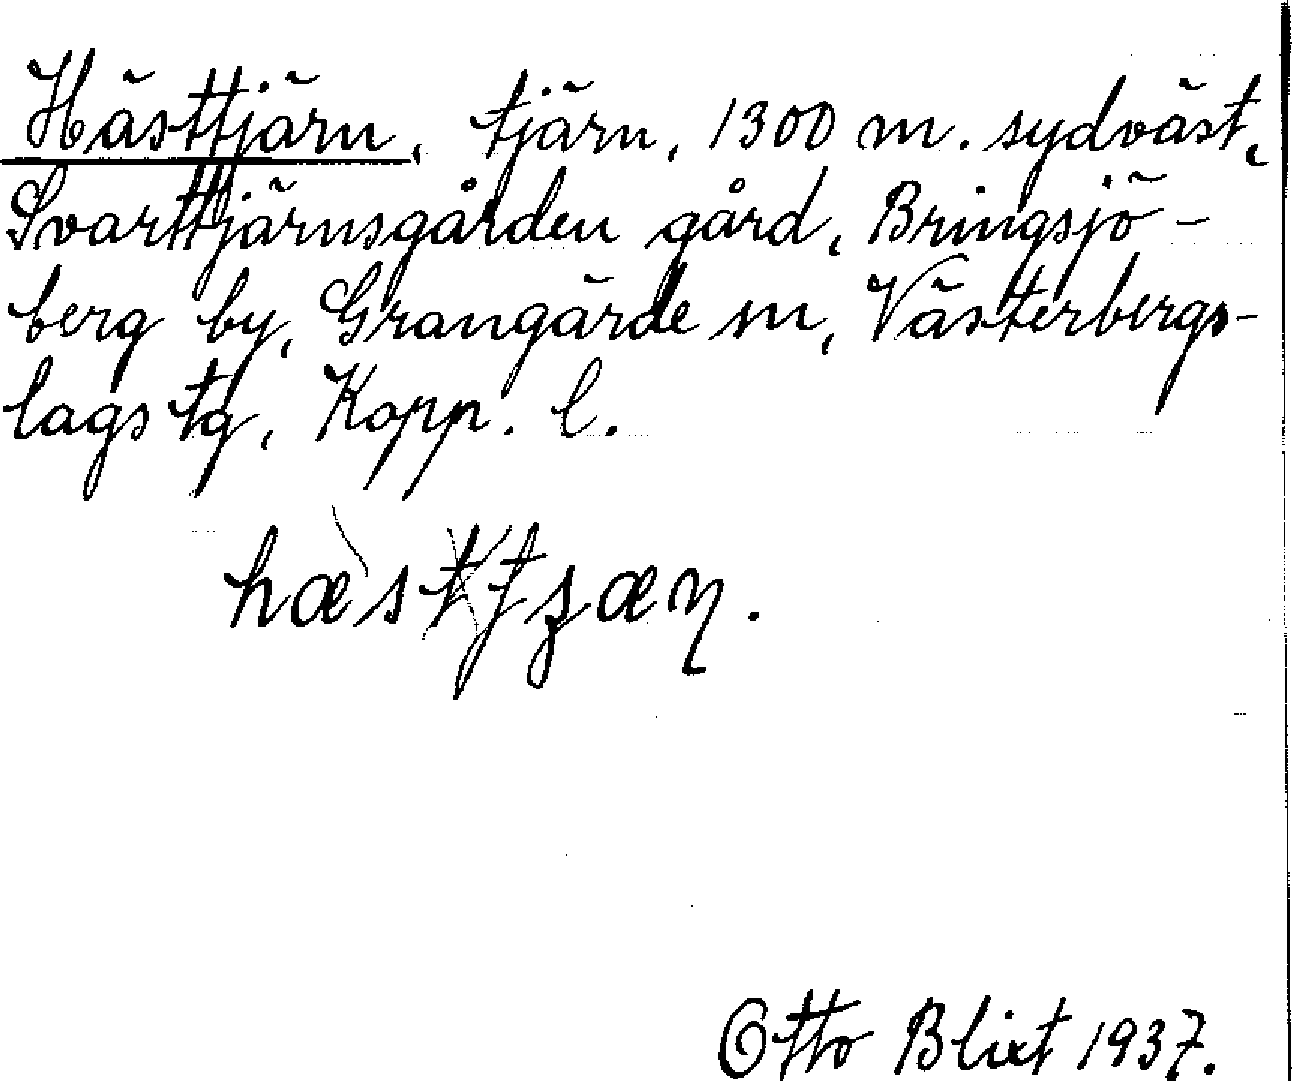 Hästtjärn, tjärn, 1300 m. sydväst,
Svarttjärnsgården gård, Bringsjö-
berg by, Grangärde sn, Västerbergs-
lags tg, Kopp. l.
Otto Blixt 1937.